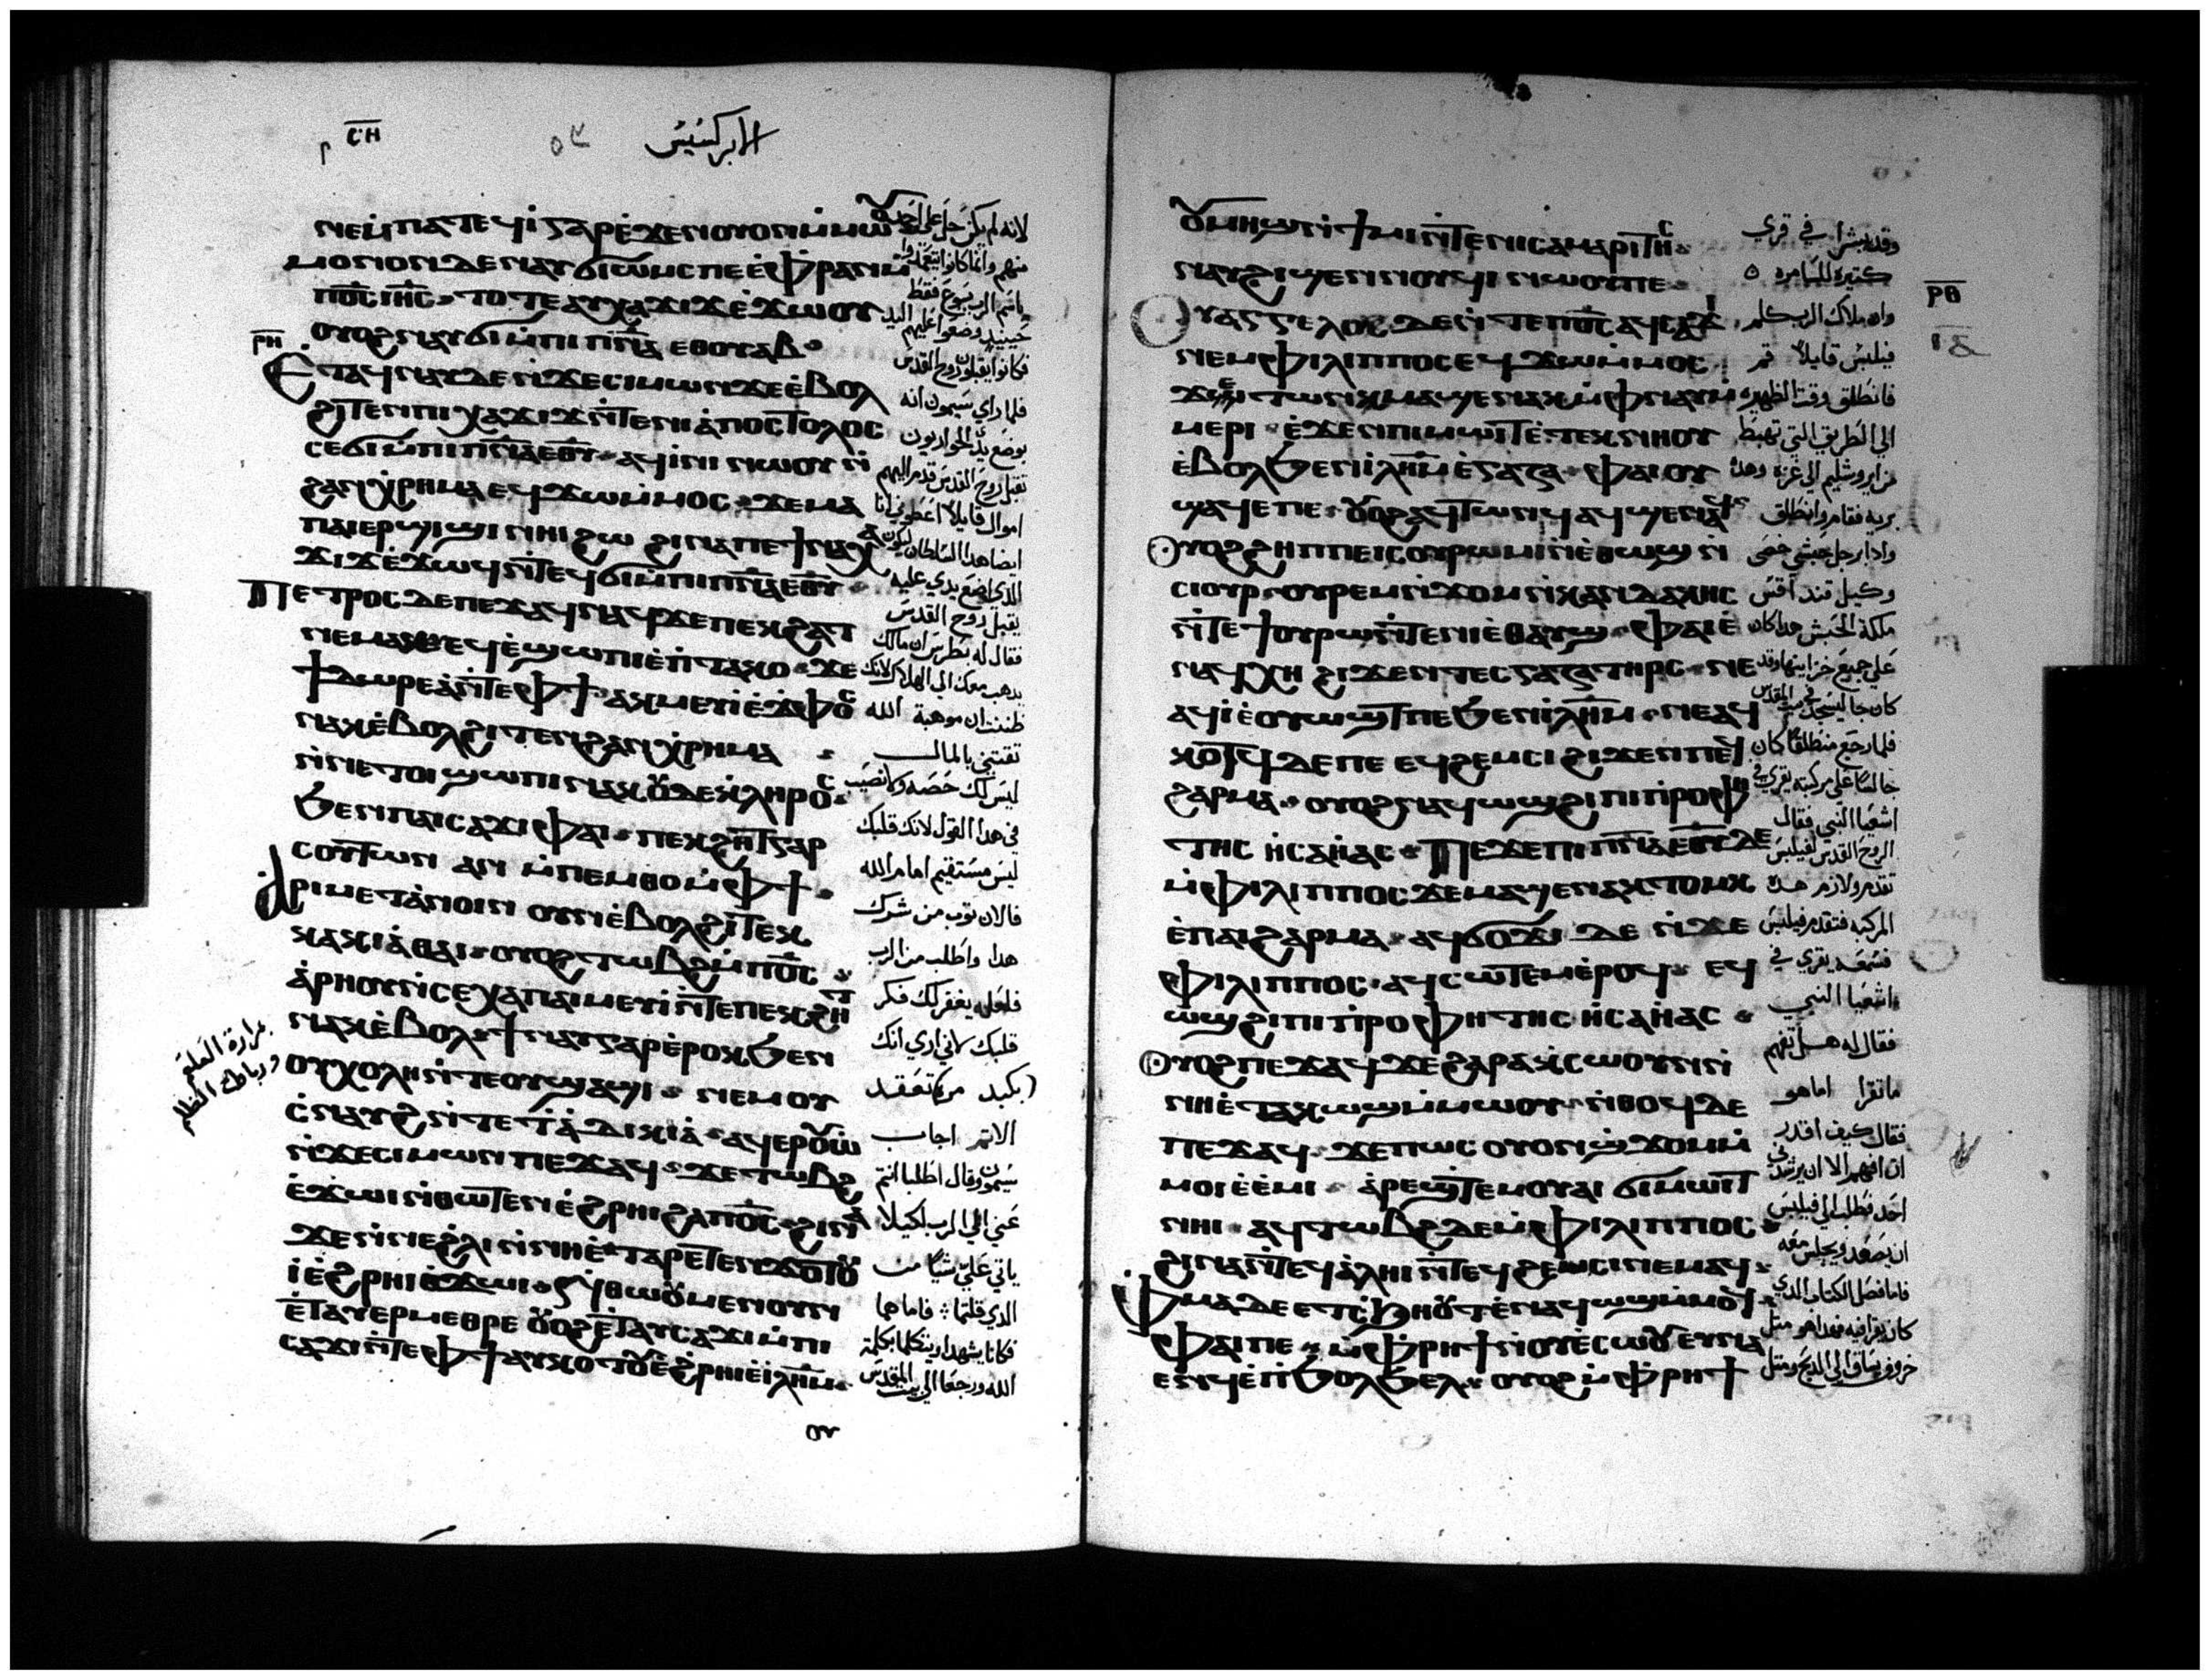 ⲥ̅ⲏ̅
الابركسيس
ⲛⲉⲙⲡⲁⲧⲉϥⲓ̀ ⲅⲁⲣ ⲉ̀ϫⲉⲛ ⲟⲩⲟⲛ ⲙ̀ⲙⲱⲟⲩ
ⲙⲟⲛⲟⲛ ⲇⲉ ⲛⲁⲩϭⲓⲱⲙⲥ ⲡⲉ ⲉ̀ⲫ̀ⲣⲁⲛ ⲙ̀
ⲡⲟ̅ⲥ̅ ⲓⲏ̅ⲥ̅ ⲧⲟⲧⲉ ⲁⲩⲭⲁϫⲓϫ ⲉ̀ϫⲱⲟⲩ
ⲟⲩⲟϩ ⲛⲁⲩϭⲓ ⲙ̀ⲡⲓⲡ̅ⲛ̅ⲁ̅ ⲉⲑⲟⲩⲁⲃ
ⲣ̅ⲏ̅
Ⲉⲧⲁϥⲛⲁⲩ ⲇⲉ ⲛ̀ϫⲉ ⲥⲓⲙⲱⲛ ϫⲉ ⲉ̀ⲃⲟⲗ
ϩⲓⲧⲉⲛ ⲡⲓⲭⲁϫⲓϫ ⲛ̀ⲧⲉ ⲛⲓⲁ̀ⲡⲟⲥⲧⲟⲗⲟⲥ
ⲥⲉϭⲓ ⲙ̀ⲡⲓⲡ̅ⲛ̅ⲁ̅ ⲉⲑⲩ ⲁϥⲓ̀ⲛⲓ ⲛⲱⲟⲩ ⲛ̀
ϩⲁⲛⲭ̀ⲣⲏⲙⲁ ⲉϥϫⲱ ⲙ̀ⲙⲟⲥ ϫⲉ ⲙⲁ
ⲡⲁⲓⲉⲣϣⲓϣⲓ ⲛⲏⲓ ϩⲱ ϩⲓⲛⲁ ⲡⲉϯⲛⲁⲭⲁ
ϫⲓϫ ⲉ̀ϫⲱϥ ⲛ̀ⲧⲉϥϭⲓ ⲙ̀ⲡⲓⲡ̅ⲛ̅ⲁ̅ ⲉⲑⲩ
Ⲡⲉⲧⲣⲟⲥ ⲇⲉ ⲡⲉϫⲁϥ ⲛⲁϥ ϫⲉ ⲡⲉⲕϩⲁⲧ
ⲛⲉⲙⲁⲕ ⲉϥⲉ̀ϣⲱⲡⲓ ⲉ̀ⲡ̀ⲧⲁⲕⲟ ϫⲉ
ϯⲇⲱⲣⲉⲁ̀ ⲛ̀ⲧⲉ ⲫϯ ⲁⲕⲙⲉⲩⲓ̀ ⲉ̀ϫ̀ⲫⲟⲥ
ⲛⲁⲕ ⲉ̀ⲃⲟⲗ ϩⲓⲧⲉⲛ ϩⲁⲛⲭ̀ⲣⲏⲙⲁ
ⲛ̀ⲛⲉ ⲧⲟⲓ ϣⲱⲡⲓ ⲛⲁⲕ ⲟⲩⲇⲉ ⲕ̀ⲗⲏⲣⲟⲥ
ϧⲉⲛ ⲡⲁⲓⲥⲁϫⲓ ⲫⲁⲓ ⲡⲉⲕϩⲏⲧ ⲅⲁⲣ
ⲥⲟⲩⲧⲱⲛ ⲁⲛ ⲙ̀ⲡⲉⲙⲑⲟ ⲙ̀ⲫϯ
Ⲁⲣⲓⲙⲉⲧⲁⲛⲟⲓⲛ ⲟⲩⲛ ⲉ̀ⲃⲟⲗ ϩⲓ ⲧⲉⲕ
ⲕⲁⲕⲓⲁ̀ ⲑⲁⲓ ⲟⲩⲟϩ ⲧⲱⲃϩ ⲙ̀ⲡⲟ̅ⲥ̅
ⲁ̀ⲣⲏⲟⲩ ⲛ̀ⲥⲉⲭⲁ ⲡⲁⲓⲙⲉⲩⲓ̀ ⲛ̀ⲧⲉ ⲡⲉⲕϩⲏⲧ
ⲛⲁⲕ ⲉ̀ⲃⲟⲗ ϯⲛⲁⲩ ⲅⲁⲣ ⲉ̀ⲣⲟⲕ ϧⲉⲛ
ⲟⲩⲭⲟⲗⲏ ⲛ̀ⲧⲉ ⲟⲩϣⲁϣⲓ ⲛⲉⲙ ⲟⲩ
ⲥ̀ⲛⲁⲩϩ ⲛ̀ⲧⲉ ϯⲁ̀ⲇⲓⲕⲓⲁ̀ ⲁϥⲉⲣⲟⲩⲱ
ⲛ̀ϫⲉ ⲥⲓⲙⲱⲛ ⲡⲉϫⲁϥ ϫⲉ ⲧⲱⲃϩ
ⲉ̀ϫⲱⲓ ⲛ̀ⲑⲱⲧⲉⲛ ⲉ̀ϩ̀ⲣⲏⲓ ϩⲁ ⲡⲟ̅ⲥ̅ ϩⲓⲛⲁ
ϫⲉ ⲛ̀ⲛⲉ ϩ̀ⲗⲓ ⲛ̀ⲛⲏ ⲉⲧⲁⲣⲉⲧⲉⲛϫⲟⲧⲟⲩ
ⲓ̀ ⲉ̀ϩ̀ⲣⲏⲓ ⲉ̀ϫⲱⲓ ⲛ̀ⲑⲱⲟⲩ ⲙⲉⲛ ⲟⲩⲛ
ⲉ̀ⲧⲁⲩⲉⲣⲙⲉⲑⲣⲉ ⲟⲩⲟϩ ⲉ̀ⲧⲁⲩⲥⲁϫⲓ ⲙ̀ⲡⲓ
ⲥⲁϫⲓ ⲛ̀ⲧⲉ ⲫϯ ⲁⲩⲕⲟⲧⲟⲩ ⲉ̀ϩ̀ⲣⲏⲓ ⲉ̀ⲓⲗⲏ̅ⲙ̅
لانه لم يكن حل على احد
منهم وانما كانوا اتعمدوا
باسم الرب يسوع فقط
حينيد وضعوا عليهم اليد
فكانوا يقبلون روح القدس
فلما راي سيمون انه
بوضع يد الحواريون
تقبل روح القدس قدم اليهم
اموال قايلا اعطوني انا
ايضا هدا السلطان ليكون
الدي اضع يدي عليه
يقبل روح القدس
فقال له بطرس ان مالك
يدهب معك الى الهلاك لانك
ظننت ان موهبة الله
تقتني بالمال
ليس لك حصه ولا نصيب
في هدا القول لانك قلبك
ليس مستقيم امام الله
فالان توب من شرك
هدا واطلب من الرب
فلعله يغفر لك فكر
قلبك لاني اري انك
بكبد مره تعقد
الاثم اجاب
سيمون وقال اطلبا انتم
عني الى الرب لكيلا
ياتي علي شيا من
الدي قلتما فاما هما
فكانا يشهدا ويتكلما بكلمة
الله ورجعا الى بيت المقدس
مرارة العلقم
ورباط الظلم
ⲟⲩⲙⲏϣ ⲛ̀ϯⲙⲓ ⲛ̀ⲧⲉ ⲛⲓⲥⲁⲙⲁⲣⲓⲧⲏⲥ
ⲛⲁⲩϩⲓϣⲉⲛⲛⲟⲩϥⲓ ⲛⲱⲟⲩ ⲡⲉ
ⲣ̅ⲑ̅
Ⲟⲩⲁⲅⲅⲉⲗⲟⲥ ⲇⲉ ⲛ̀ⲧⲉ ⲡⲟ̅ⲥ̅ ⲁϥⲥⲁϫⲓ
ⲛⲉⲙ ⲫⲓⲗⲓⲡⲡⲟⲥ ⲉϥϫⲱ ⲙ̀ⲙⲟⲥ
ϫⲉ ⲧⲱⲛⲕ ⲙⲁϣⲉⲛⲁⲕ ⲙ̀ⲫ̀ⲛⲁⲩ ⲙ̀
ⲙⲉⲣⲓ ⲉ̀ϫⲉⲛ ⲡⲓⲙⲱⲓⲧ ⲉⲧⲉⲕⲛⲏⲟⲩ
ⲉ̀ⲃⲟⲗ ϧⲉⲛ ⲓⲗⲏ̅ⲙ̅ ⲉ̀ⲅⲁⲍⲁ ⲫⲁⲓ ⲟⲩ
ϣⲁϥⲉ ⲡⲉ ⲟⲩⲟϩ ⲁϥⲧⲱⲛϥ ⲁϥϣⲉⲛⲁϥ
Ⲟⲩⲟϩ ϩⲏⲡⲡⲉ ⲓⲥ ⲟⲩⲣⲱⲙⲓ ⲛ̀ⲉ̀ⲑⲱϣ ⲛ̀
ⲥⲓⲟⲩⲣ ⲟⲩⲣⲉⲙⲛ̀ϫⲟⲙ ⲛ̀ⲕⲁⲛⲇⲁⲕⲏⲥ
ⲛ̀ⲧⲉ ϯⲟⲩⲣⲱ ⲛ̀ⲧⲉ ⲛⲓⲉ̀ⲑⲁⲩϣ ⲫⲁⲓ ⲉ̀
ⲛⲁϥⲭⲏ ϩⲓϫⲉⲛ ⲧⲉⲥⲅⲁⲍⲁ ⲧⲏⲣⲥ ⲛⲉ
ⲁϥⲓ̀ ⲉ̀ⲟⲩⲱϣⲧ ⲡⲉ ϧⲉⲛ ⲓⲗⲏ̅ⲙ̅ ⲛⲉⲁϥ
ⲕⲟⲧϥ ⲇⲉ ⲡⲉ ⲉϥϩⲉⲙⲥⲓ ϩⲓϫⲉⲛ ⲡⲉϥ
ϩⲁⲣⲙⲁ ⲟⲩⲟϩ ⲛⲁϥⲱϣ ϩⲓ ⲡⲓⲡ̀ⲣⲟⲫⲏ
ⲧⲏⲥ ⲏ̀ⲥⲁⲏ̀ⲁⲥ Ⲡⲉϫⲉ ⲡⲓⲡ̅ⲛ̅ⲁ̅ ⲉⲑⲩ ⲇⲉ
ⲙ̀ⲫⲓⲗⲓⲡⲡⲟⲥ ϫⲉ ⲙⲁϣⲉⲛⲁⲕ ⲧⲟⲙⲕ
ⲉ̀ⲡⲁⲓϩⲁⲣⲙⲁ ⲁϥϭⲟϫⲓ ⲇⲉ ⲛ̀ϫⲉ
ⲫⲓⲗⲓⲡⲡⲟⲥ ⲁϥⲥⲱⲧⲉⲙ ⲉ̀ⲣⲟϥ ⲉϥ
ⲱϣ ϩⲓ ⲡⲓⲡ̀ⲣⲟⲫⲏⲧⲏⲥ ⲏ̀ⲥⲁⲏ̀ⲁⲥ
Ⲟⲩⲟϩ ⲡⲉϫⲁϥ ϫⲉ ϩⲁⲣⲁ ⲕ̀ⲥⲱⲟⲩⲛ ⲛ̀
ⲛⲏ ⲉⲧⲁⲕⲱϣ ⲙ̀ⲙⲱⲟⲩ ⲛ̀ⲑⲟϥ ⲇⲉ
ⲡⲉϫⲁϥ ϫⲉ ⲡⲱⲥ ⲟⲩⲟⲛ ϣ̀ϫⲟⲙ ⲙ̀
ⲙⲟⲓ ⲉ̀ⲉ̀ⲙⲓ ⲁ̀ⲣⲉϣⲧⲉⲙ ⲟⲩⲁⲓ ϭⲓⲙⲱⲓⲧ
ⲛⲏⲓ ⲁϥⲧⲱⲃϩ ⲇⲉ ⲙ̀ⲫⲓⲗⲓⲡⲡⲟⲥ
ϩⲓⲛⲁ ⲛ̀ⲧⲉϥⲁ̀ⲗⲏⲓ ⲛ̀ⲧⲉϥϩⲉⲙⲥⲓ ⲛⲉⲙⲁϥ
Ⲫⲙⲁ ⲇⲉ ⲉⲧⲥ̀ϧⲏⲟⲩⲧ ⲉ̀ⲛⲁϥⲱϣ ⲙ̀ⲙⲟϥ
ⲫⲁⲓ ⲡⲉ ⲙ̀ⲫ̀ⲣⲏϯ ⲛ̀ⲟⲩⲉ̀ⲥⲱⲟⲩ ⲉⲩⲛⲁ
ⲉⲛϥ ⲉ̀ⲡ̀ϧⲟⲗϧⲉⲗ ⲟⲩⲟϩ ⲙ̀ⲫ̀ⲣⲏϯ
وقد بشرا في قري
كتيرة للسامره
وان ملاك الرب كلم
فيلبس قايلا قم
فانطلق وقت الظهيره
الى الطريق التي تهبط
من ايروشليم الى غزه وهده
بريه فقام وانطلق
وادا برجل حبشي خصى
وكيل قنداقس
ملكة الحبش هدا كان
على جميع خزاينها وقد
كان جا ليسجد في بيت المقدس
فلما رجع منطلقا كان
جالسا على مركبته يقري في
اشعيا النبي فقال
الروح القدس لفيلبس
تقدم ولازم هده
المركبه فتقدم فيلبس
فسمعه يقري في
اشعيا النبي
فقال له هل تفهم
ما تقرا اما هو
فقال كيف اقدر
ان افهم الا ان يرشدني
احد فطلب الى فيلبس
ان يصعد ويجلس معه
فاما فصل الكتاب الدي
كان يقرا فيه فهدا هو مثل
خروف يساق الى الدبح ومثل